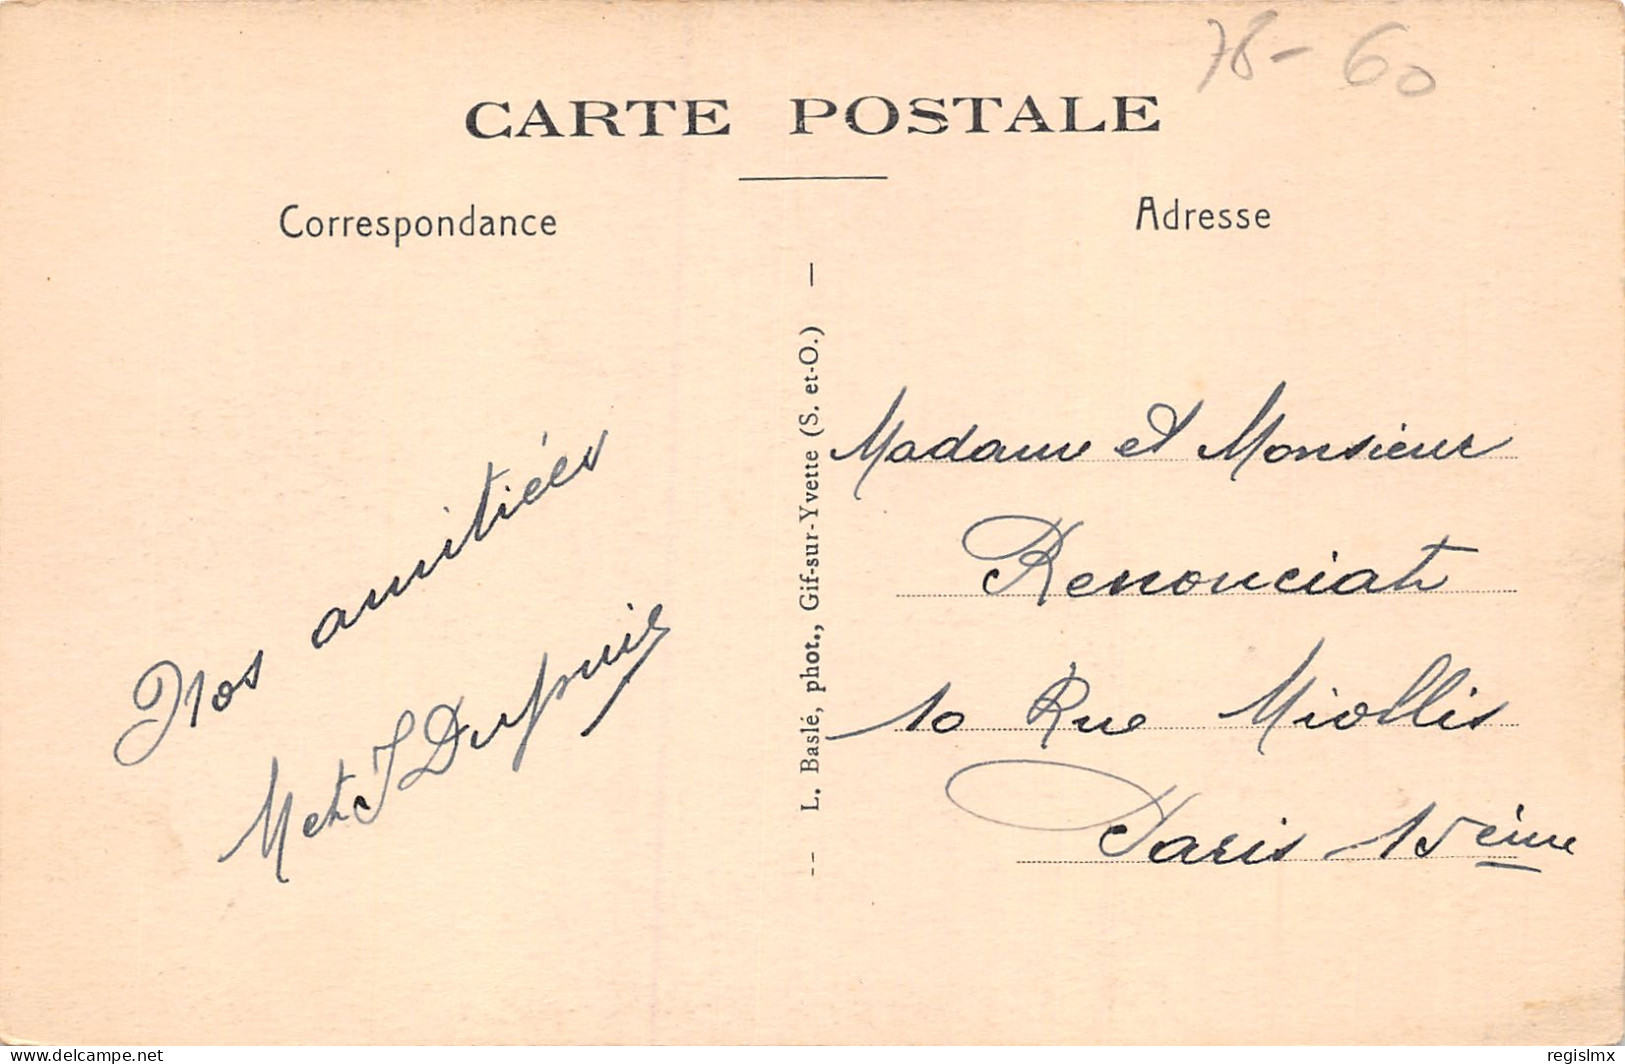 78- 60
CARTE POSTALE
Correspondance
Adresse
Nos amitiés
M et J Dupuis
-- L. Baslé, phot., Gif-sur-Yvette (S. et-O.) —
Madame et Monsieur
Renonciat
10 Rue Miollis
Paris 15ème
www.delcampe.net
regislmx